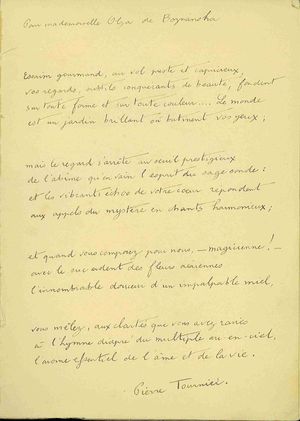 Pour mademoiselle Olga de Boznanska
Essaim gourmand, au vol preste et capricieux,
vos regards, subtils conquérants de beauté, fondent
sur toute forme et sur toute couleur.... Le monde
est un jardin brillant où butinent vos yeux ;
mais le regard s'arrête au seuil prestigieux
de l'abîme qu'en vain l'esprit du sage sonde :
et les vibrants échos de votre cœur répondent
aux appels du mystère en chants harmonieux ;
et quand vous composez pour nous, — magicienne ! —
avec le suc ardent des fleurs aériennes
l'innombrable douceur d'un impalpable miel,
vous mêlez, aux clartés que vous avez ravies
à l'hymne diapré du multiple arc-en-ciel,
l'arome essentiel de l'âme et de la vie.
Pierre Tournier.